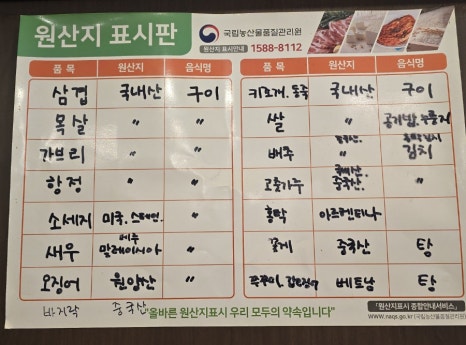 원산지 표시판
국립농산물품질관리원
원산지 표시안내 1588-8112
품 목 원산지 음식명
삼겹 국내산 구이
목살 〃 〃
가브리 〃 〃
항정 〃 〃
소세지 미국. 스페인. 〃
새우 페루 말레이시아 〃
오징어 원양산 〃
바지락 중국산
품 목 원산지 음식명
국내산 구이
쌀 〃 공기밥. 누룽지
배추 〃 김치
고춧가루 중국산. 〃
홍딱 아르헨티나
꽃게 중국산 탕
베트남 탕
"올바른 원산지표시 우리 모두의 약속입니다"
「원산지표시 종합안내서비스」
www.naqs.go.kr(국립농산물품질관리원)